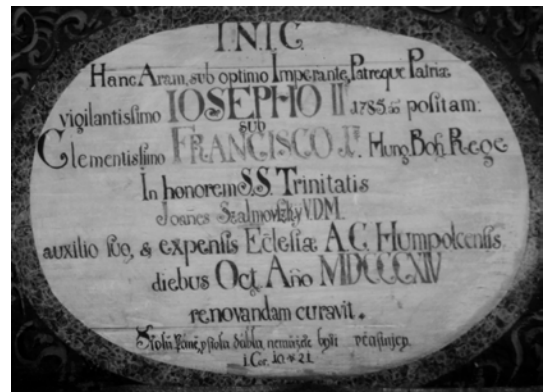 I.N.I.C.
Hanc Aram, sub optimo Imperante, Patreque Patriæ
vigilantissimo IOSEPHO II. 1785 positam:
SUB
Clementissimo FRANCISCO I. Hung. Boh. Rege
In honorem S.S. Trinitatis
Joan̄es Szalmovszky V.D.M.
auxilio suo, & expensis Ecclesiæ A.C. Humpolcensis
diebus Oct. An̄o MDCCCXIV
renovandam curavit.
Stolu Páně, a stolu ďábla, nemůžete býti
I. Cor. 10 v 21.